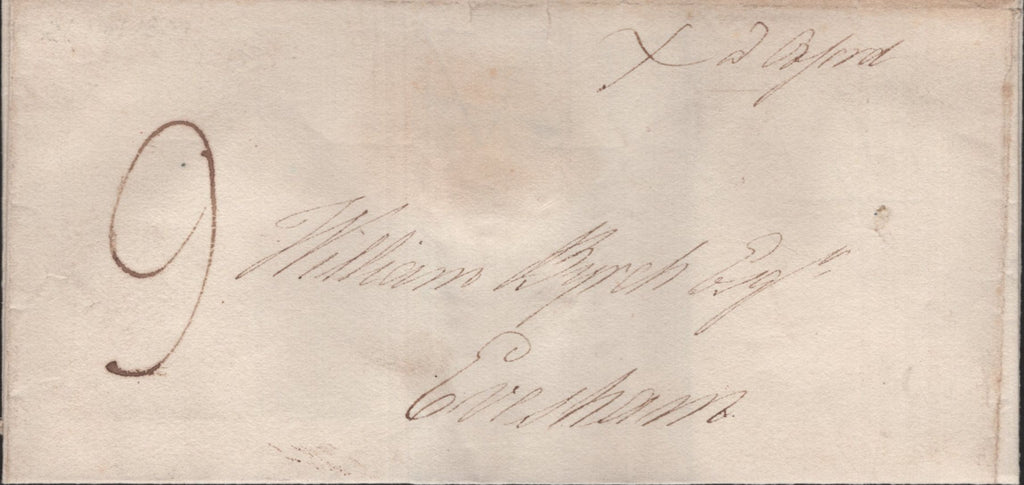 X d Oxford
9
William Byrch Esqr
Evesham